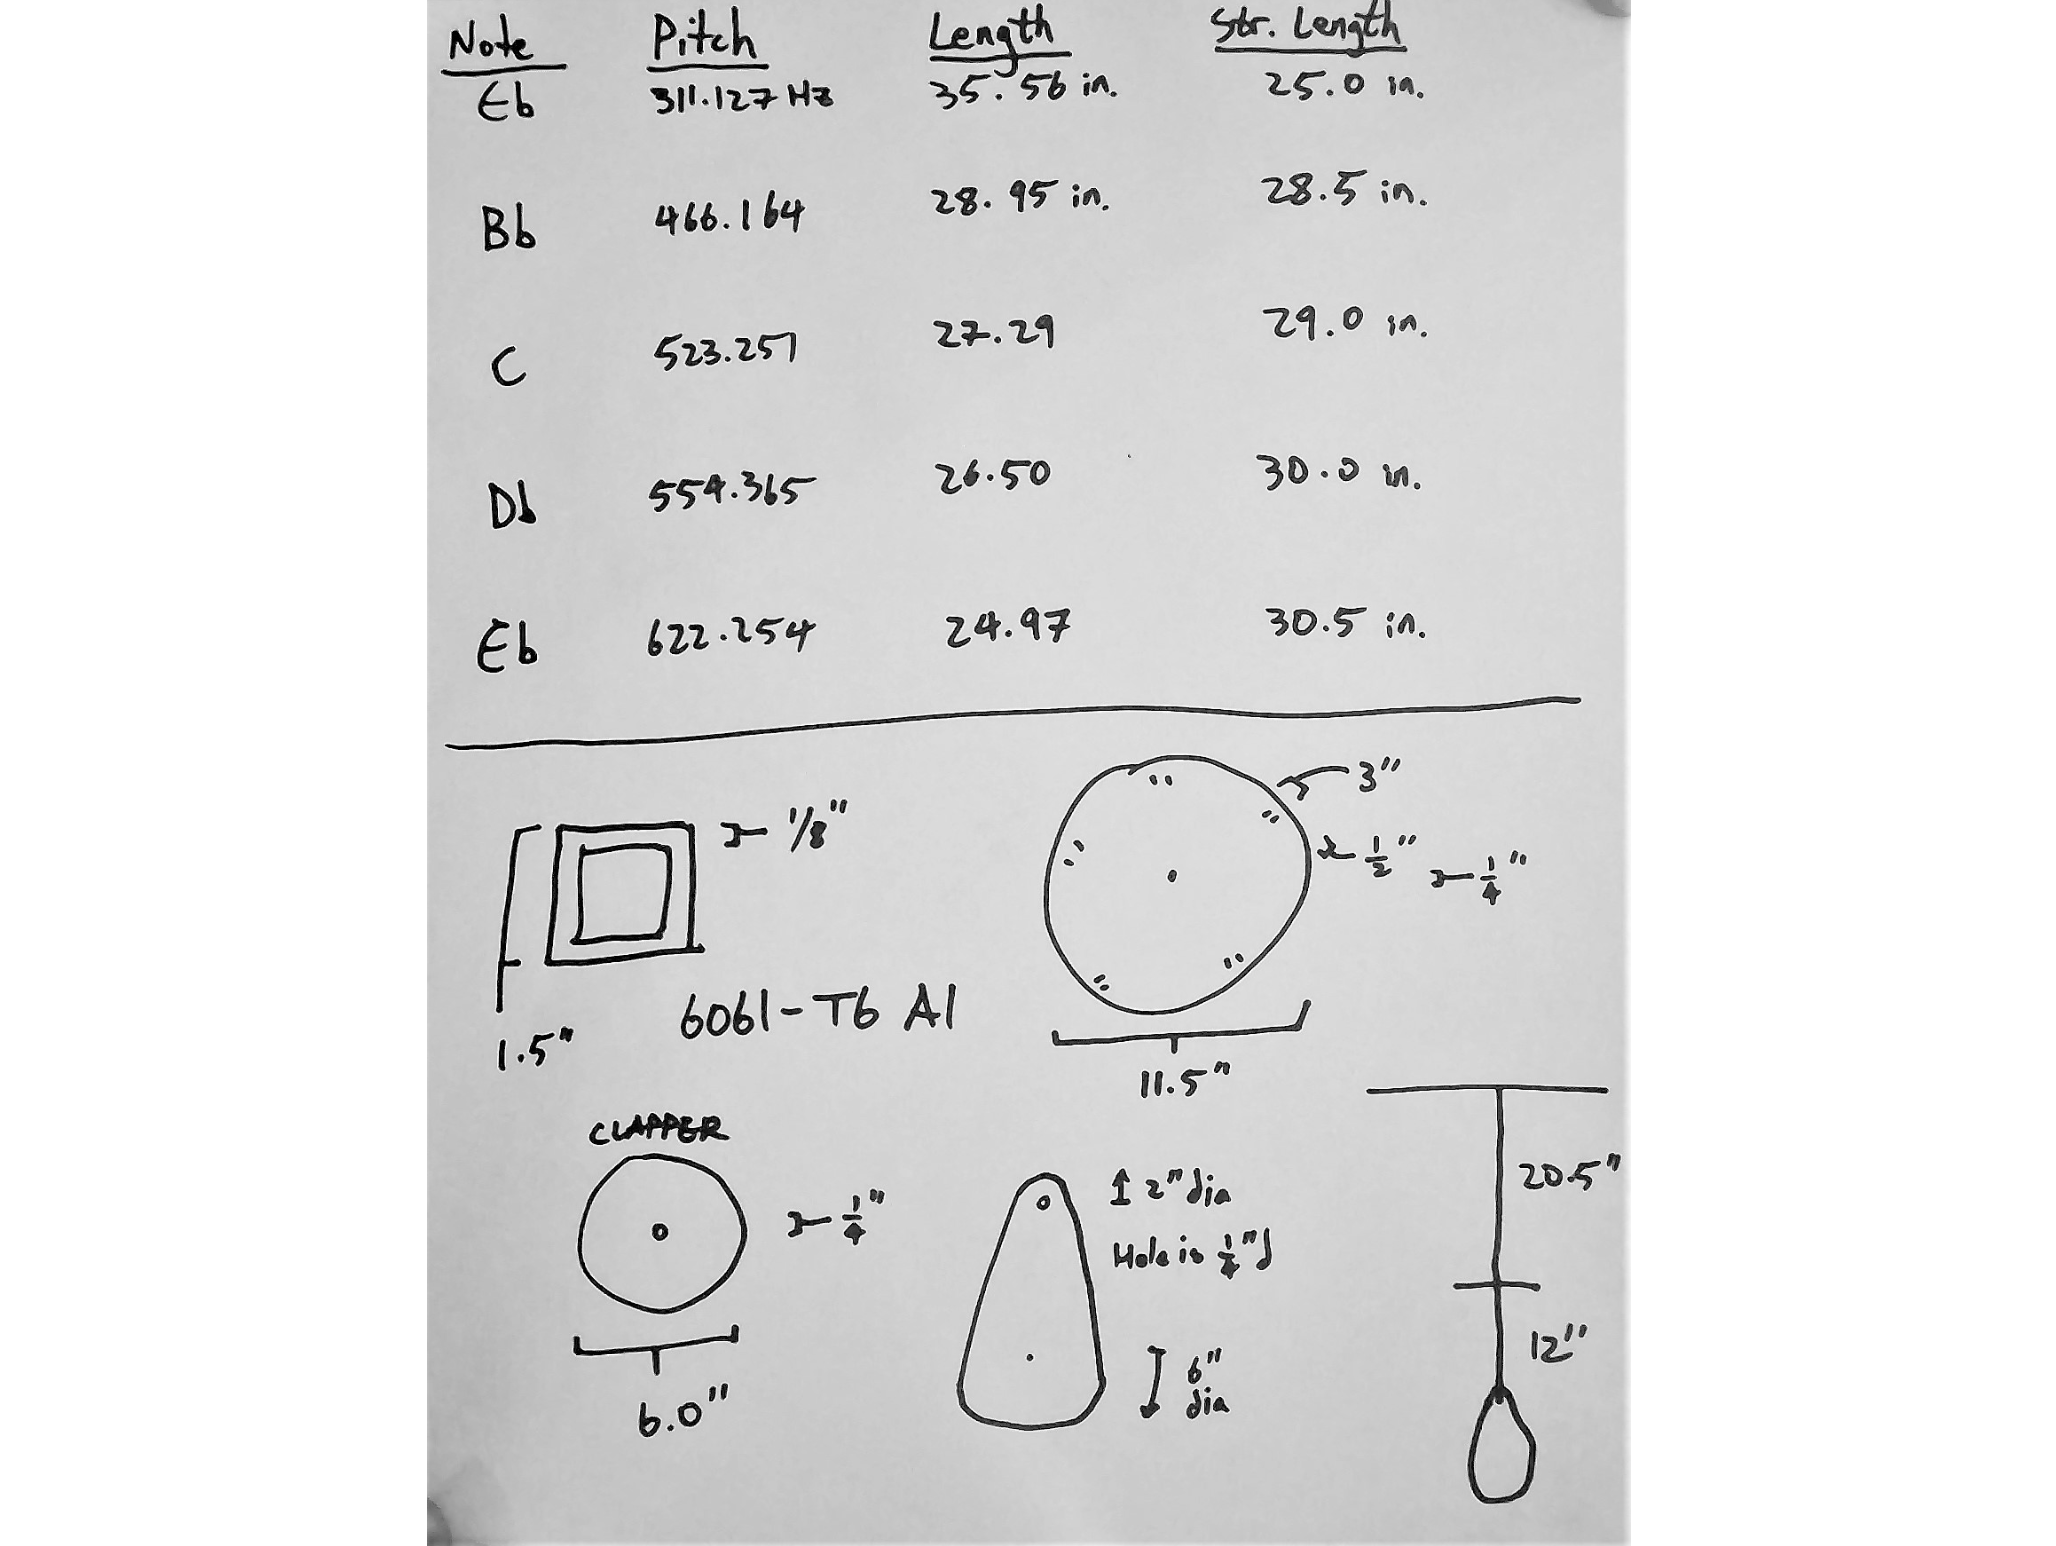 Note Pitch Length Str. Length
Eb 311.127 Hz 35.56 in. 25.0 in.
Bb 466.164 28.95 in. 28.5 in.
C 523.251 27.29 29.0 in.
Db 554.365 26.50 30.0 in.
Eb 622.254 24.97 30.5 in.
1/8"
1.5"
6061-T6 Al
3"
1/2"
1/4"
11.5"
CLAPPER
1/4"
6.0"
2" dia
Hole is 1/4" d
6"
dia
20.5"
12"